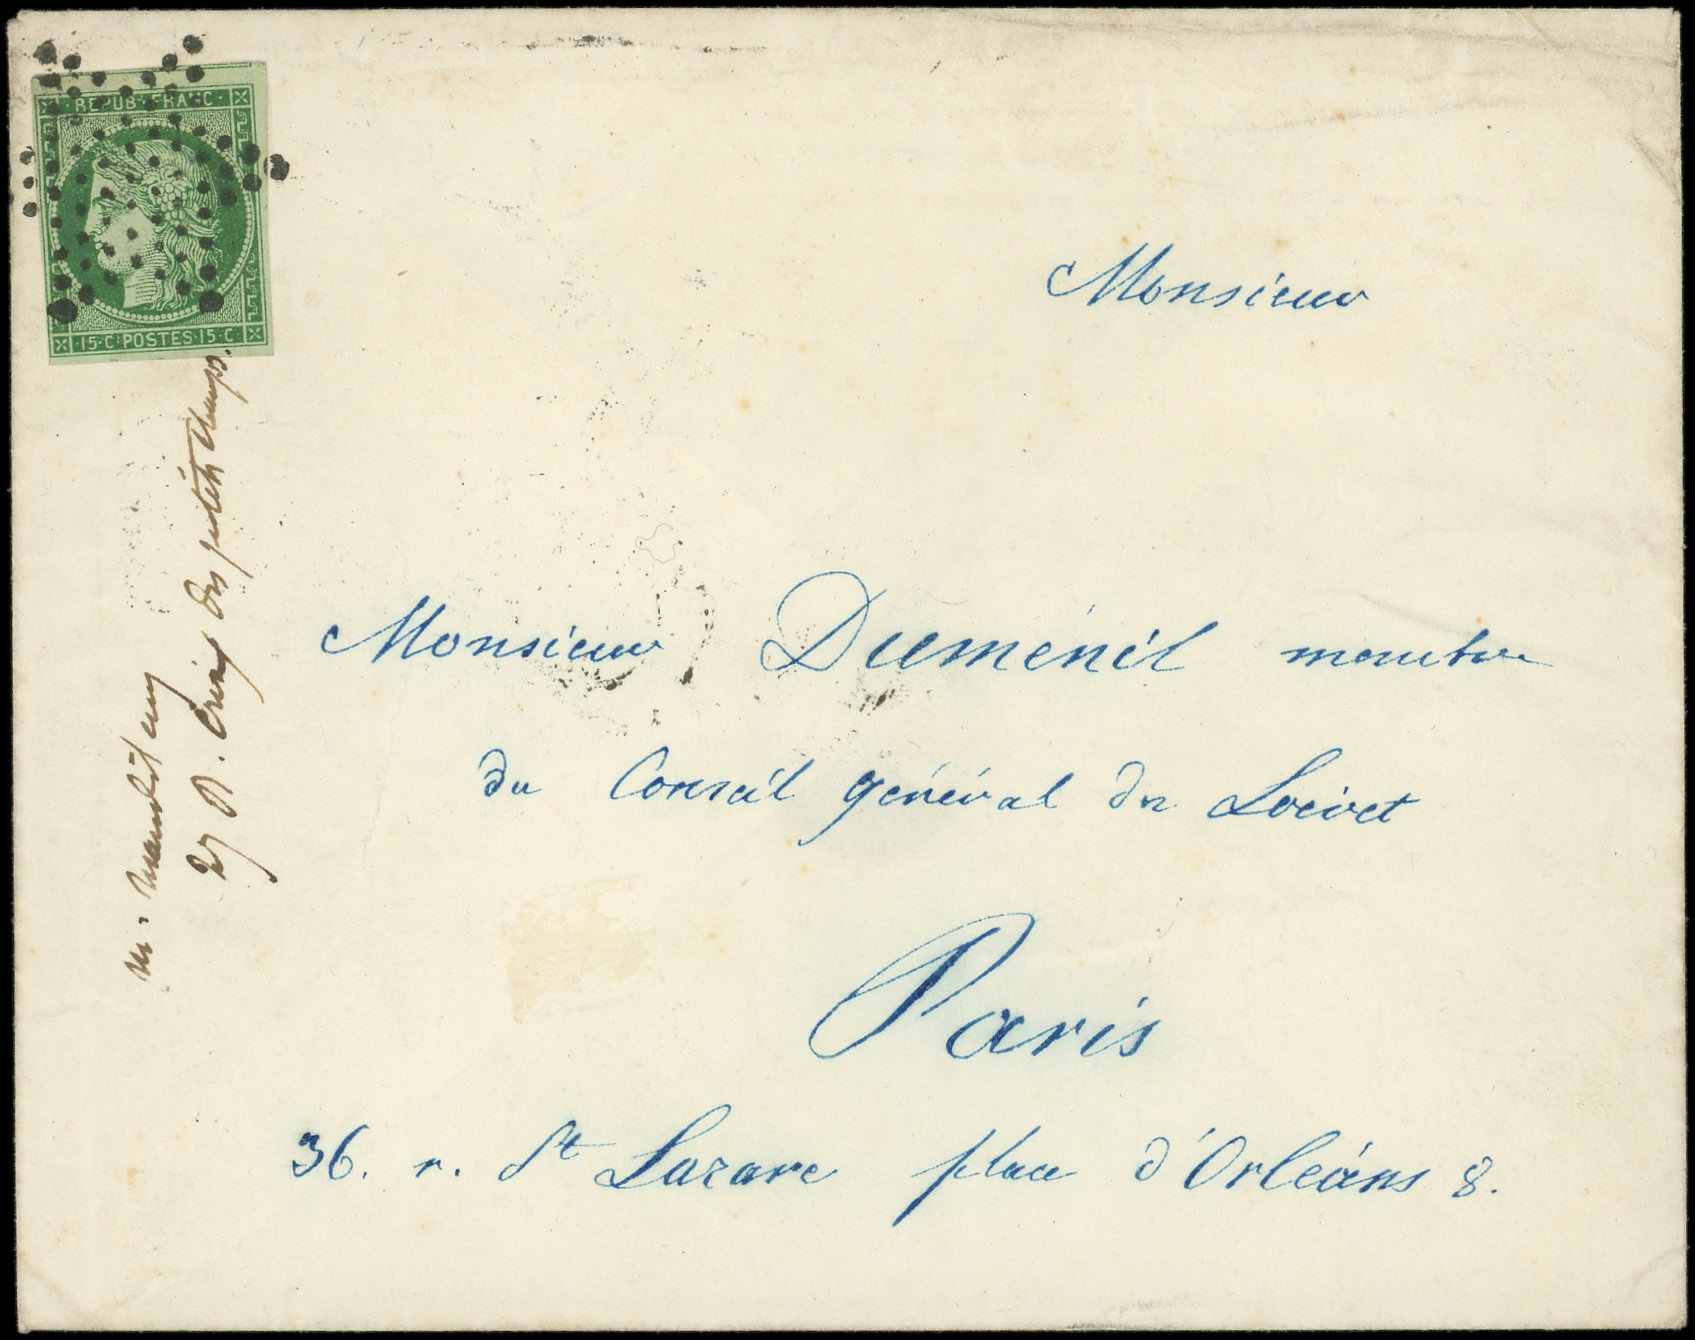 REPUB·FRANC·
·15·C·POSTES·15·C·
Monsieur
Monsieur Dumenil membre
du Conseil général du Loiret
Paris
36. r. St Lazare place d'Orléans 8.
27 des petits Champs.